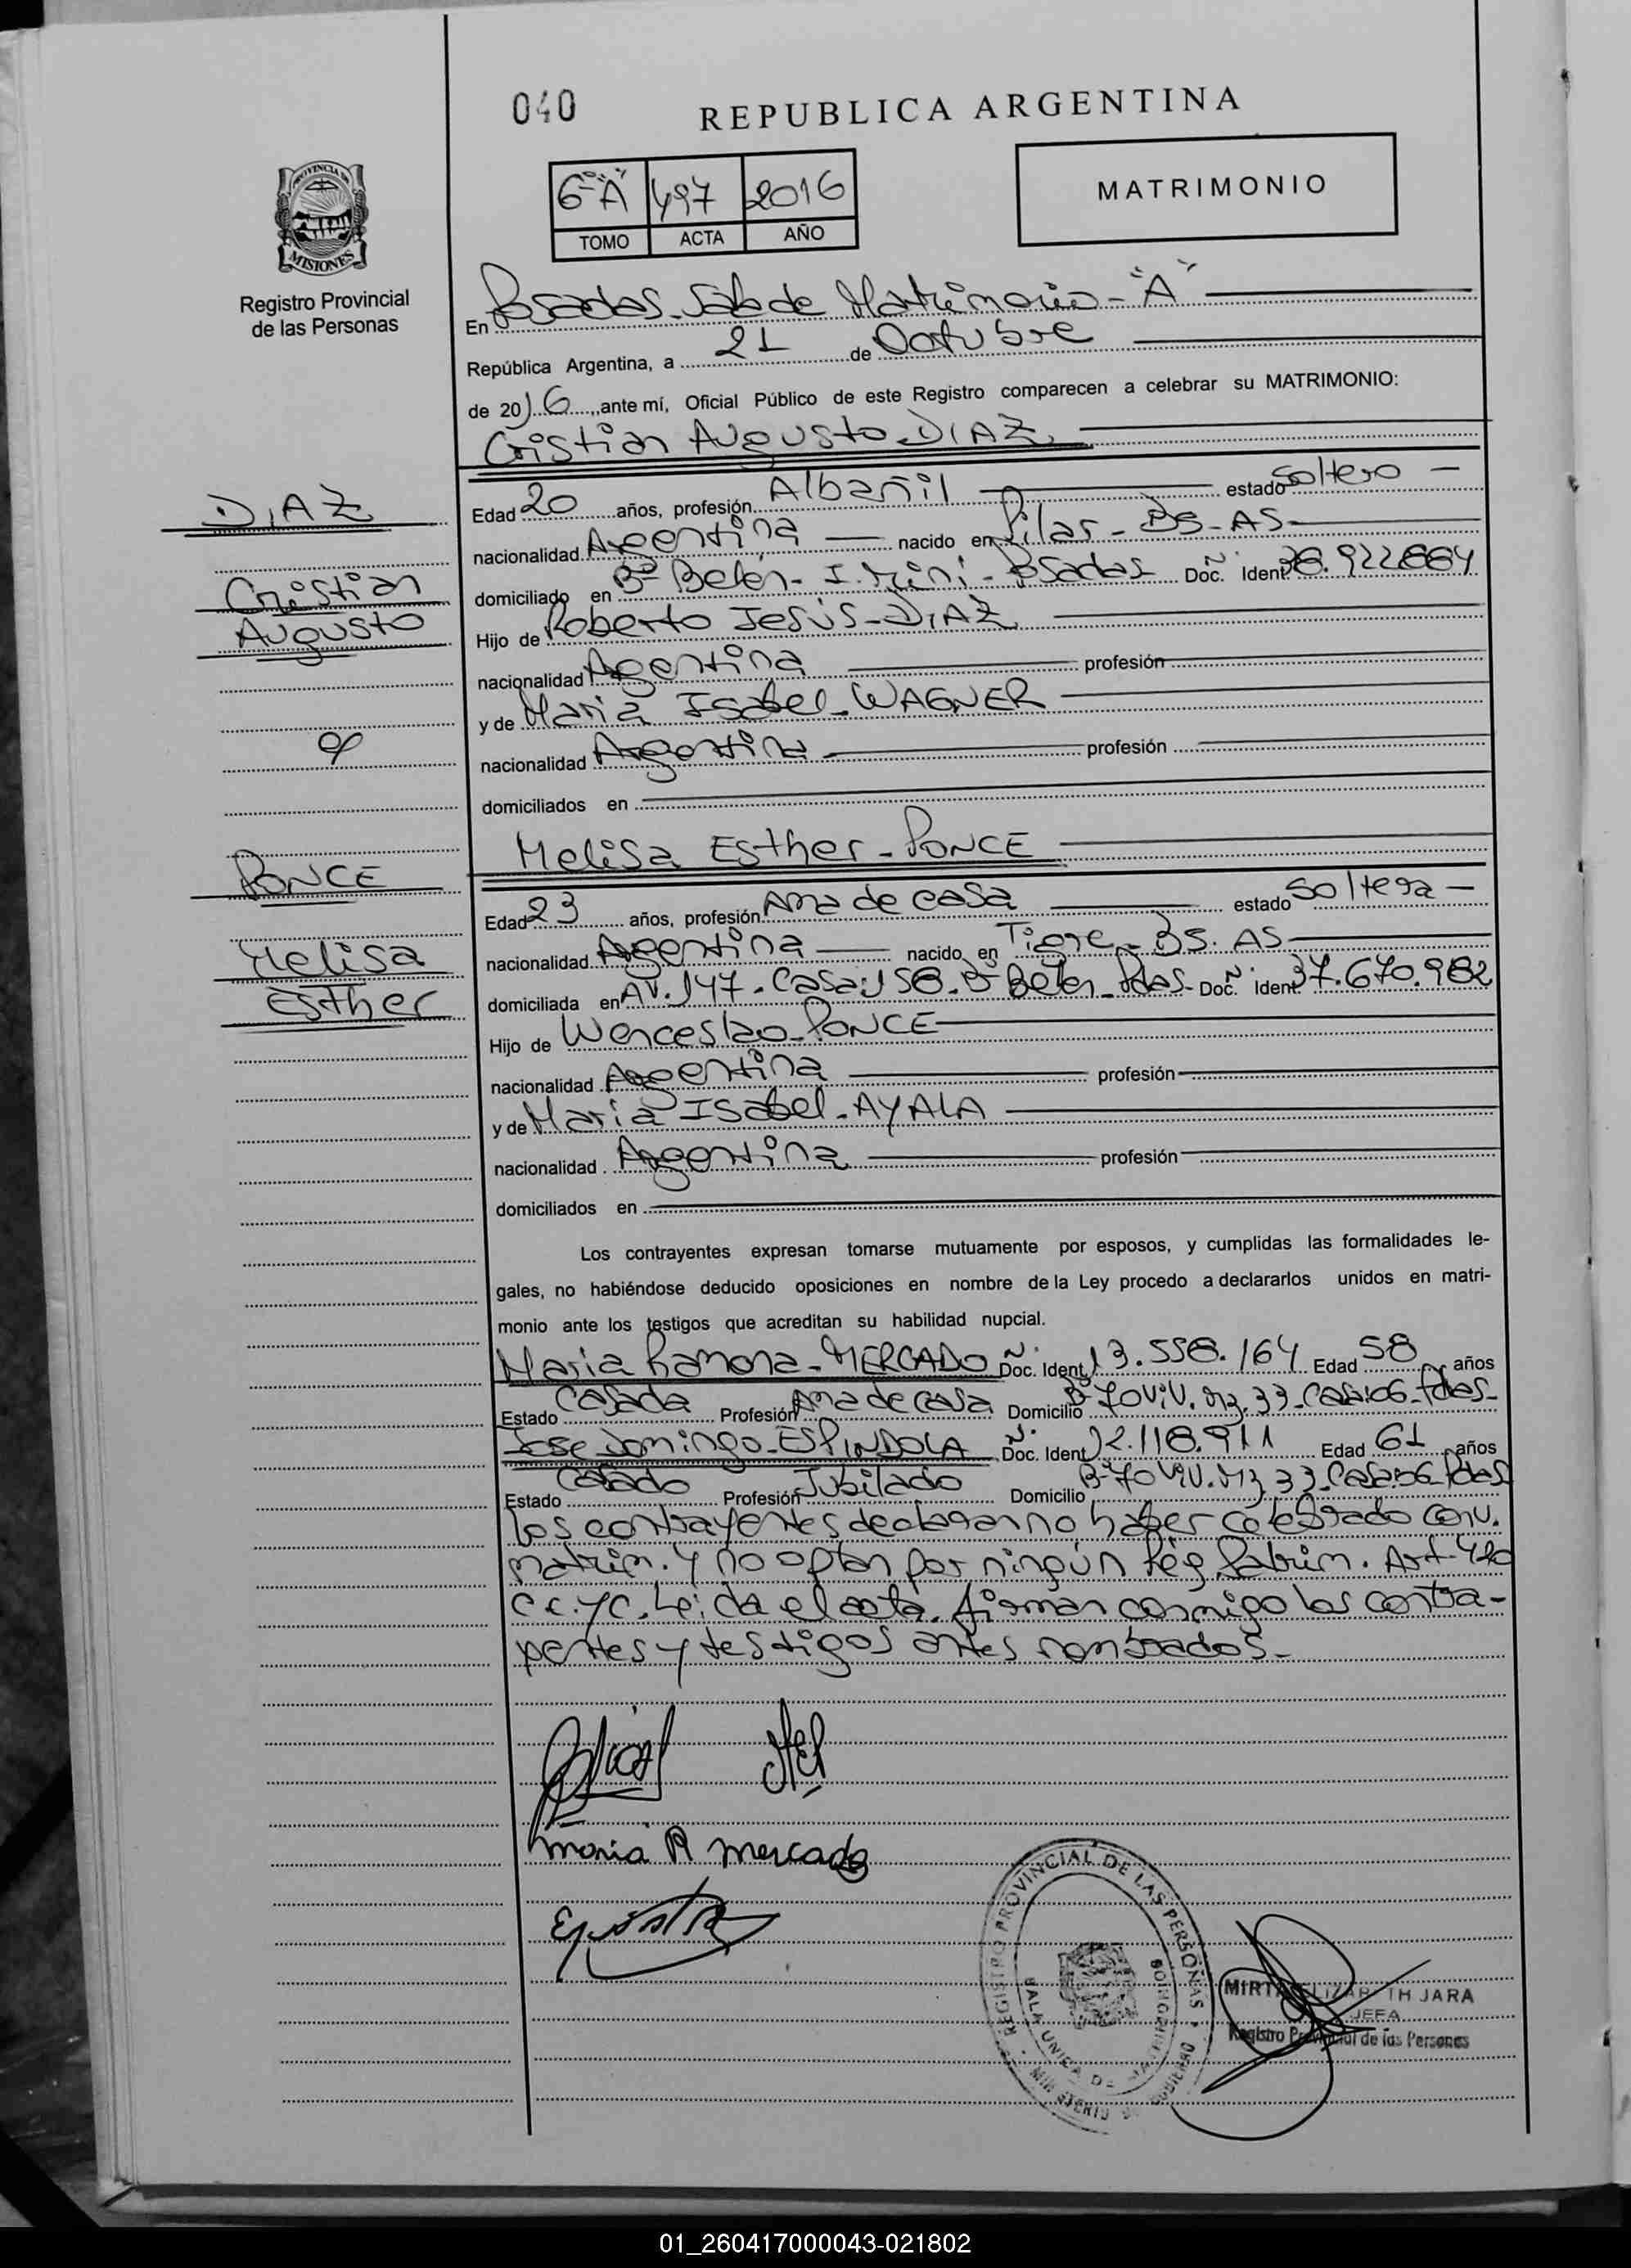 040
REPUBLICA ARGENTINA
6º"A" 497 2016
TOMO ACTA AÑO
MATRIMONIO
PROVINCIA DE
MISIONES
Registro Provincial
de las Personas
En Posadas - Sala de Matrimonio - "A"
República Argentina, a 21 de Octubre
de 2016, ante mí, Oficial Público de este Registro comparecen a celebrar su MATRIMONIO:
Cristian Augusto - DIAZ
DIAZ
Cristian
Augusto
Edad 20 años, profesión Albañil estado soltero -
nacionalidad Argentina nacido en Pilar - BS - AS -
domiciliado en Bº Belén - I. Miní - Posadas Doc. Ident.
Hijo de Roberto Jesús - DIAZ
nacionalidad Argentina profesión
y de Maria Isabel - WAGNER
nacionalidad Argentina profesión
domiciliados en
Melisa Esther - PONCE
PONCE
Melisa
Esther
Edad 23 años, profesión Ama de casa estado soltera -
nacionalidad Argentina nacido en Tigre - BS. AS
domiciliada en AV. 147 - Casa: 158. Bº Belén - Pdas - Doc. Ident 37.670.982
Hijo de Wenceslao - PONCE
nacionalidad Argentina profesión
y de Maria Isabel - AYALA
nacionalidad Argentina profesión
domiciliados en
Los contrayentes expresan tomarse mutuamente por esposos, y cumplidas las formalidades le-
gales, no habiéndose deducido oposiciones en nombre de la Ley procedo a declararlos unidos en matri-
monio ante los testigos que acreditan su habilidad nupcial.
Maria Ramona - MERCADO Doc. Ident 13.558.164 Edad 58 años
Estado Casada Profesión Ama de casa Domicilio Bº 70 Viv. Mz. 33 - Casa: 06 - Pdas -
Jose Domingo - ESPINDOLA Doc. Ident 12.118.911 Edad 61 años
Estado Casado Profesión Jubilado Domicilio Bº 70 Viv. Mz 33 - Casa: 06 Pdas
los contrayentes declaran no haber celebrado conv.
matrim. y no optan por ningún Rég. Patrim. Art. 420
C.C. y C. Leida el acta, firman conmigo los contra-
yentes y testigos antes nombrados -
Maria R mercado
REGISTRO PROVINCIAL DE LAS PERSONAS
MIRTA ELIZABETH JARA
JEFA
Registro Provincial de las Personas
01_260417000043-021802